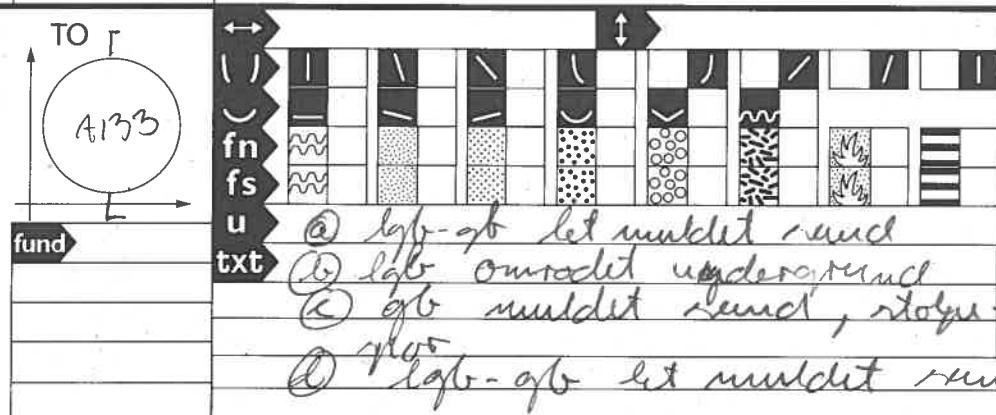 TO
A133
fn
fs
u
txt
fund
(a) lgb-gb let muldet sand
(b) lgb omrodet undergrund
(c) gb muldet sand, stolpe-
spor
(d) lgb-gb let muldet san